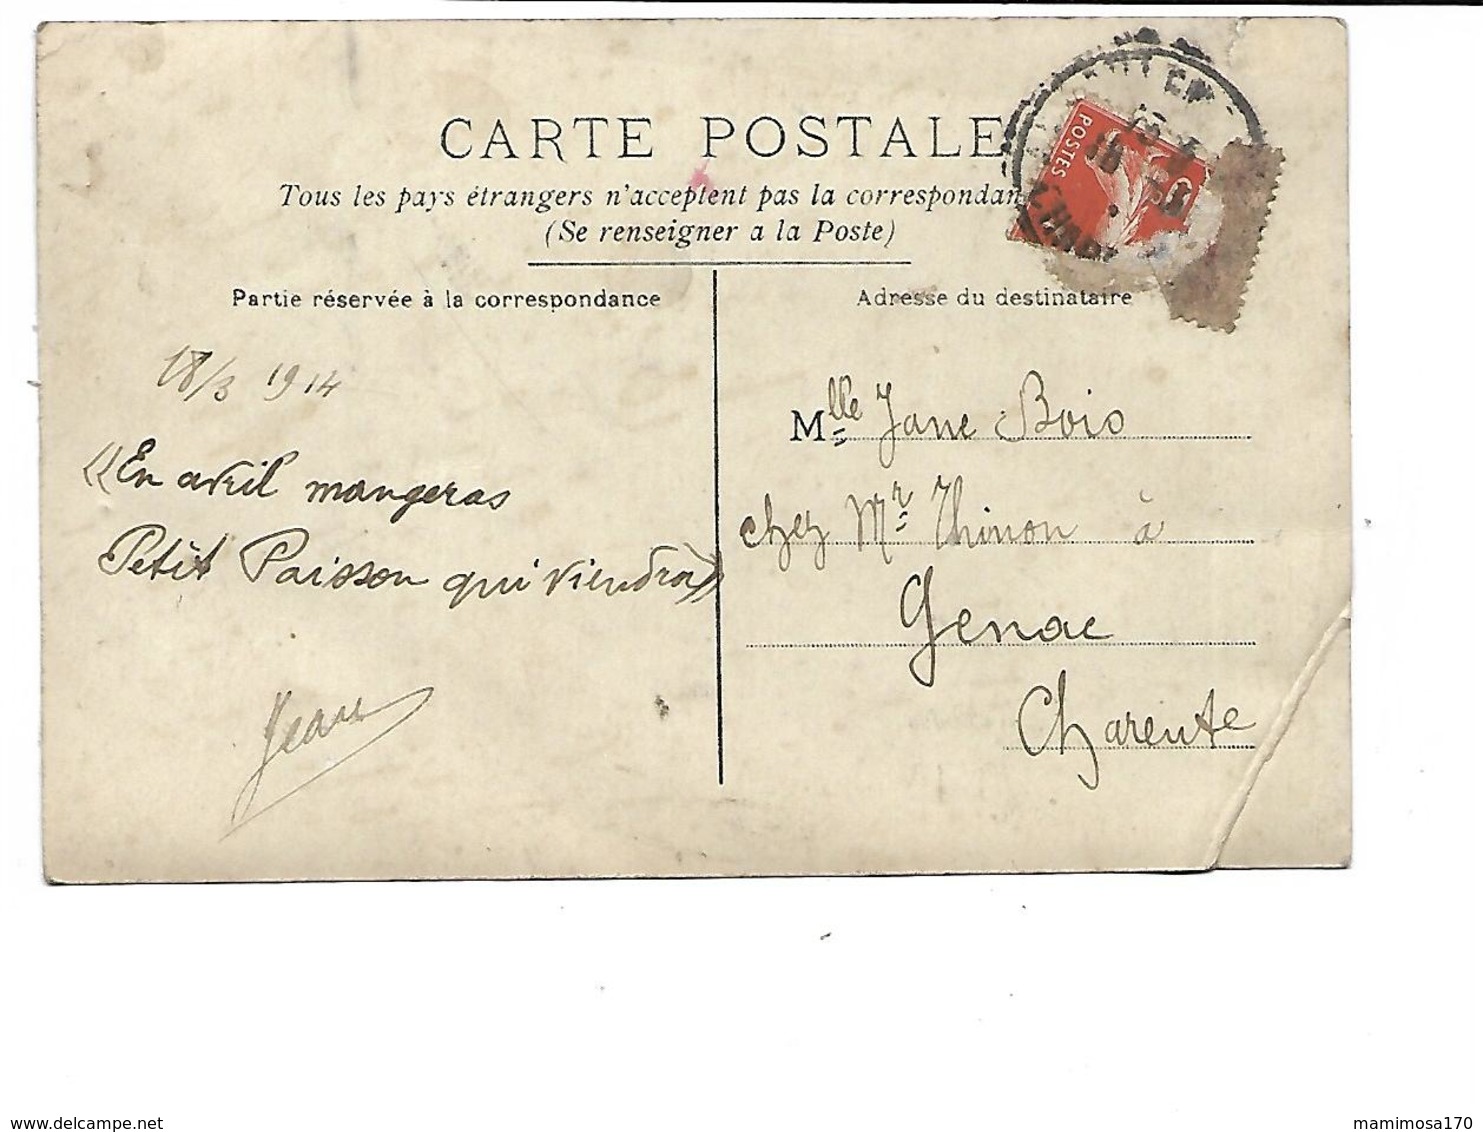 CARTE POSTALE
Tous les pays étrangers n'acceptent pas la correspondan
(Se renseigner a la Poste)
Partie réservée à la correspondance
Adresse du destinataire
POSTES
18/3 1914
«En avril mangeras
Petit Poisson qui viendra»
Jean
Mlle Jane Bois
chez Mr Thinon à
Genac
Charente
www.delcampe.net
mamimosa170